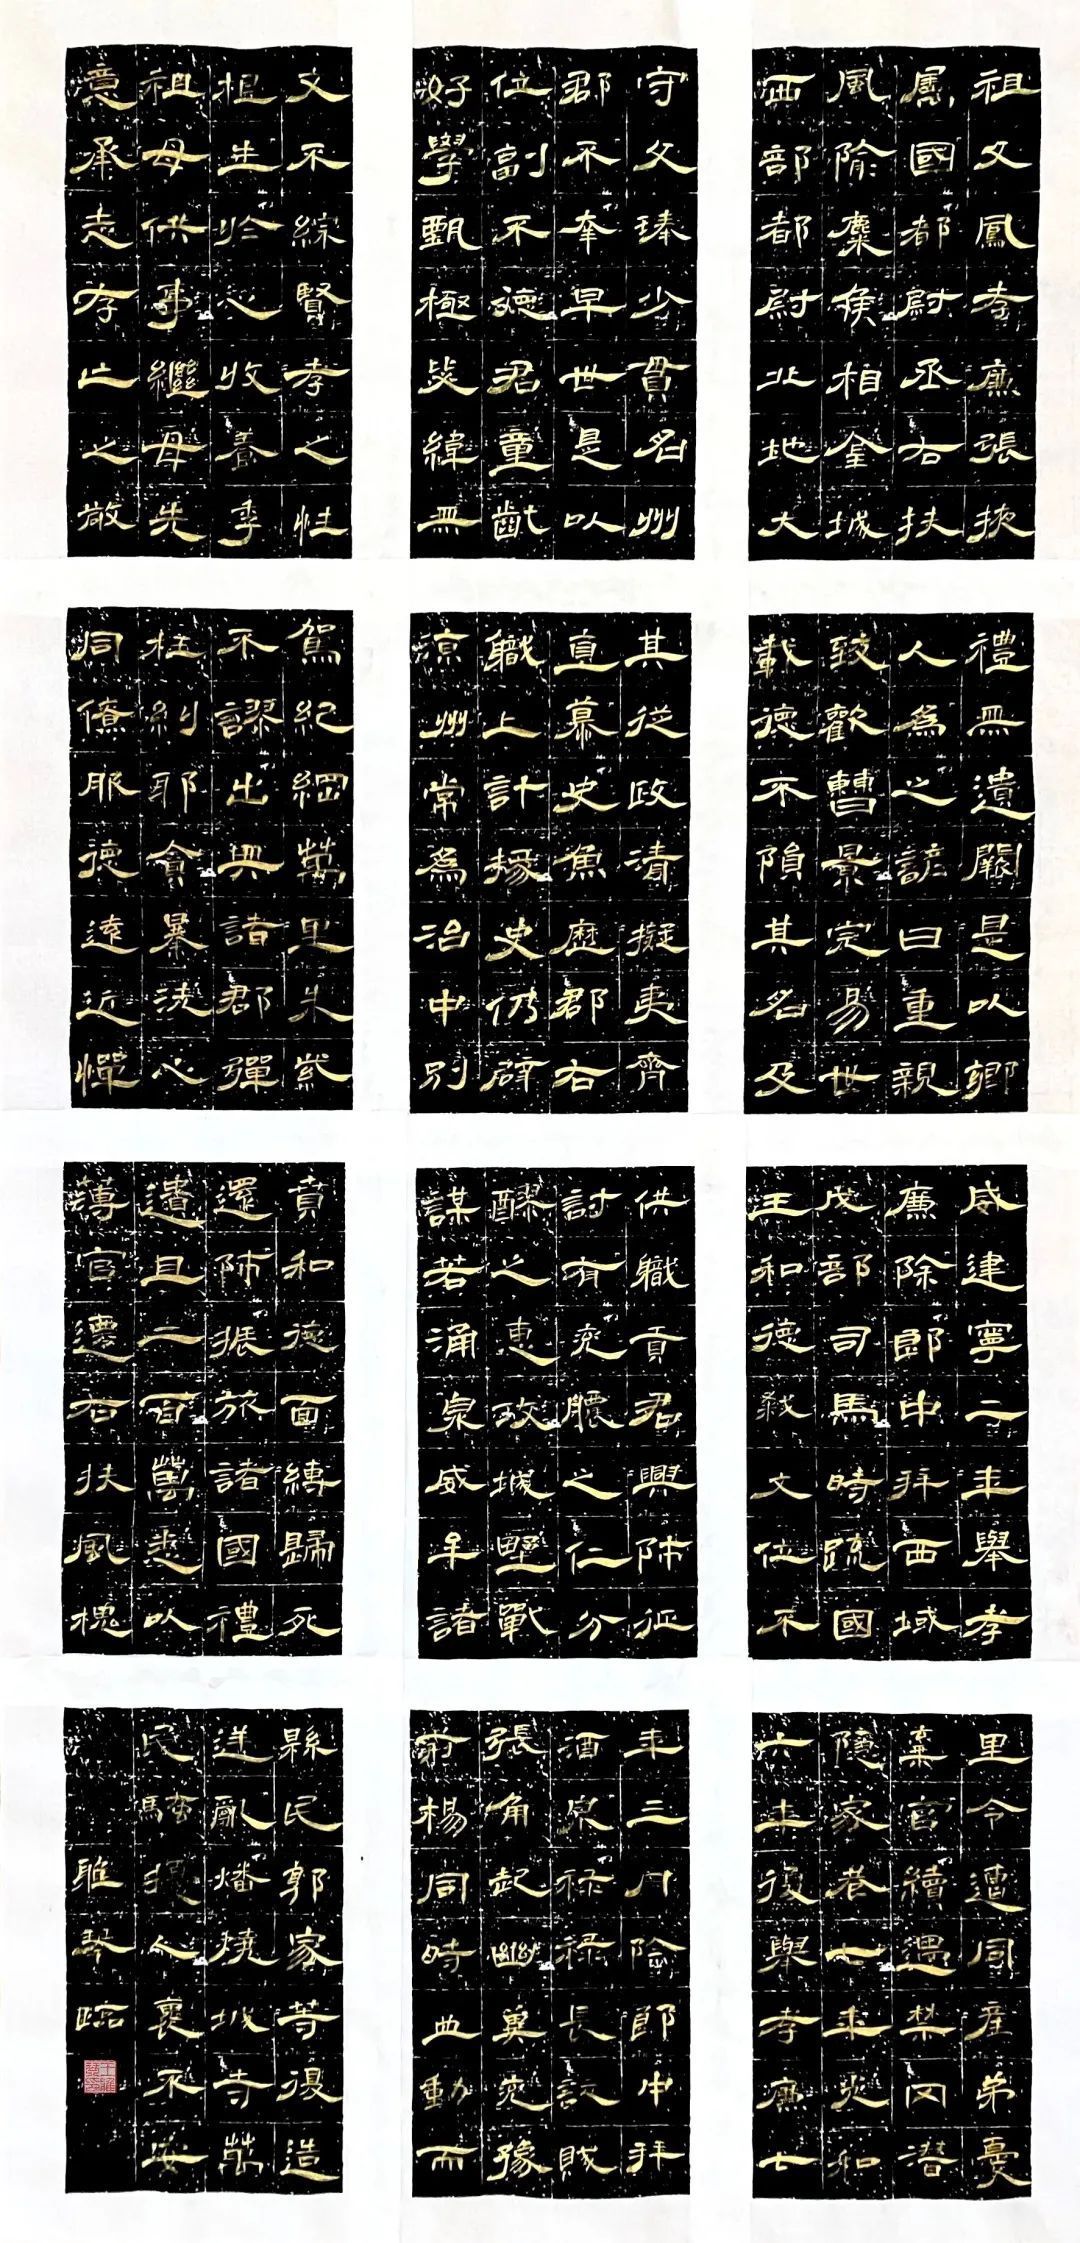 祖父鳳孝廉張掖
屬國都尉丞右扶
風隃麋侯相金城
西部都尉北地大
守父琫少貫名州
郡不幸早世是以
位副不德君童齔
好學甄極毖緯無
文不綜賢孝之性
根生於心收養季
祖母供事繼母先
意承志存亡之敬
禮無遺闕是以鄉
人為之諺曰重親
致歡曹景完易世
載德不隕其名及
其從政清擬夷齊
直慕史魚歷郡右
職上計掾史仍辟
涼州常為治中別
駕紀綱萬里朱紫
不謬出典諸郡彈
枉糾邪貪暴洗心
同僚服德遠近憚
威建寧二年舉孝
廉除郎中拜西域
戊部司馬時疏國
王和德弒父位不
供職貢君興師征
討有兗膿之仁分
醪之惠攻城野戰
謀若涌泉威牟諸
賁和德面縛歸死
還師振旅諸國禮
遺且二百萬悉以
薄官遷右扶風槐
里令遭同產弟憂
棄官續遇禁罔潛
隱家巷七年光和
六年復舉孝廉七
年三月除郎中拜
酒泉祿祿長訞賊
張角起幽冀兗豫
荊楊同時並動而
縣民郭家等復造
逆亂燔燒城寺萬
民騷擾人裏不安
雎琴臨